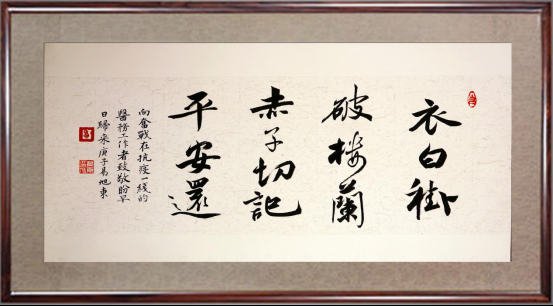 衣白褂
破楼蘭
赤子切記
平安還
向奮戰在抗疫一綫的
醫務工作者致敬盼早
日歸來庚子易旭東